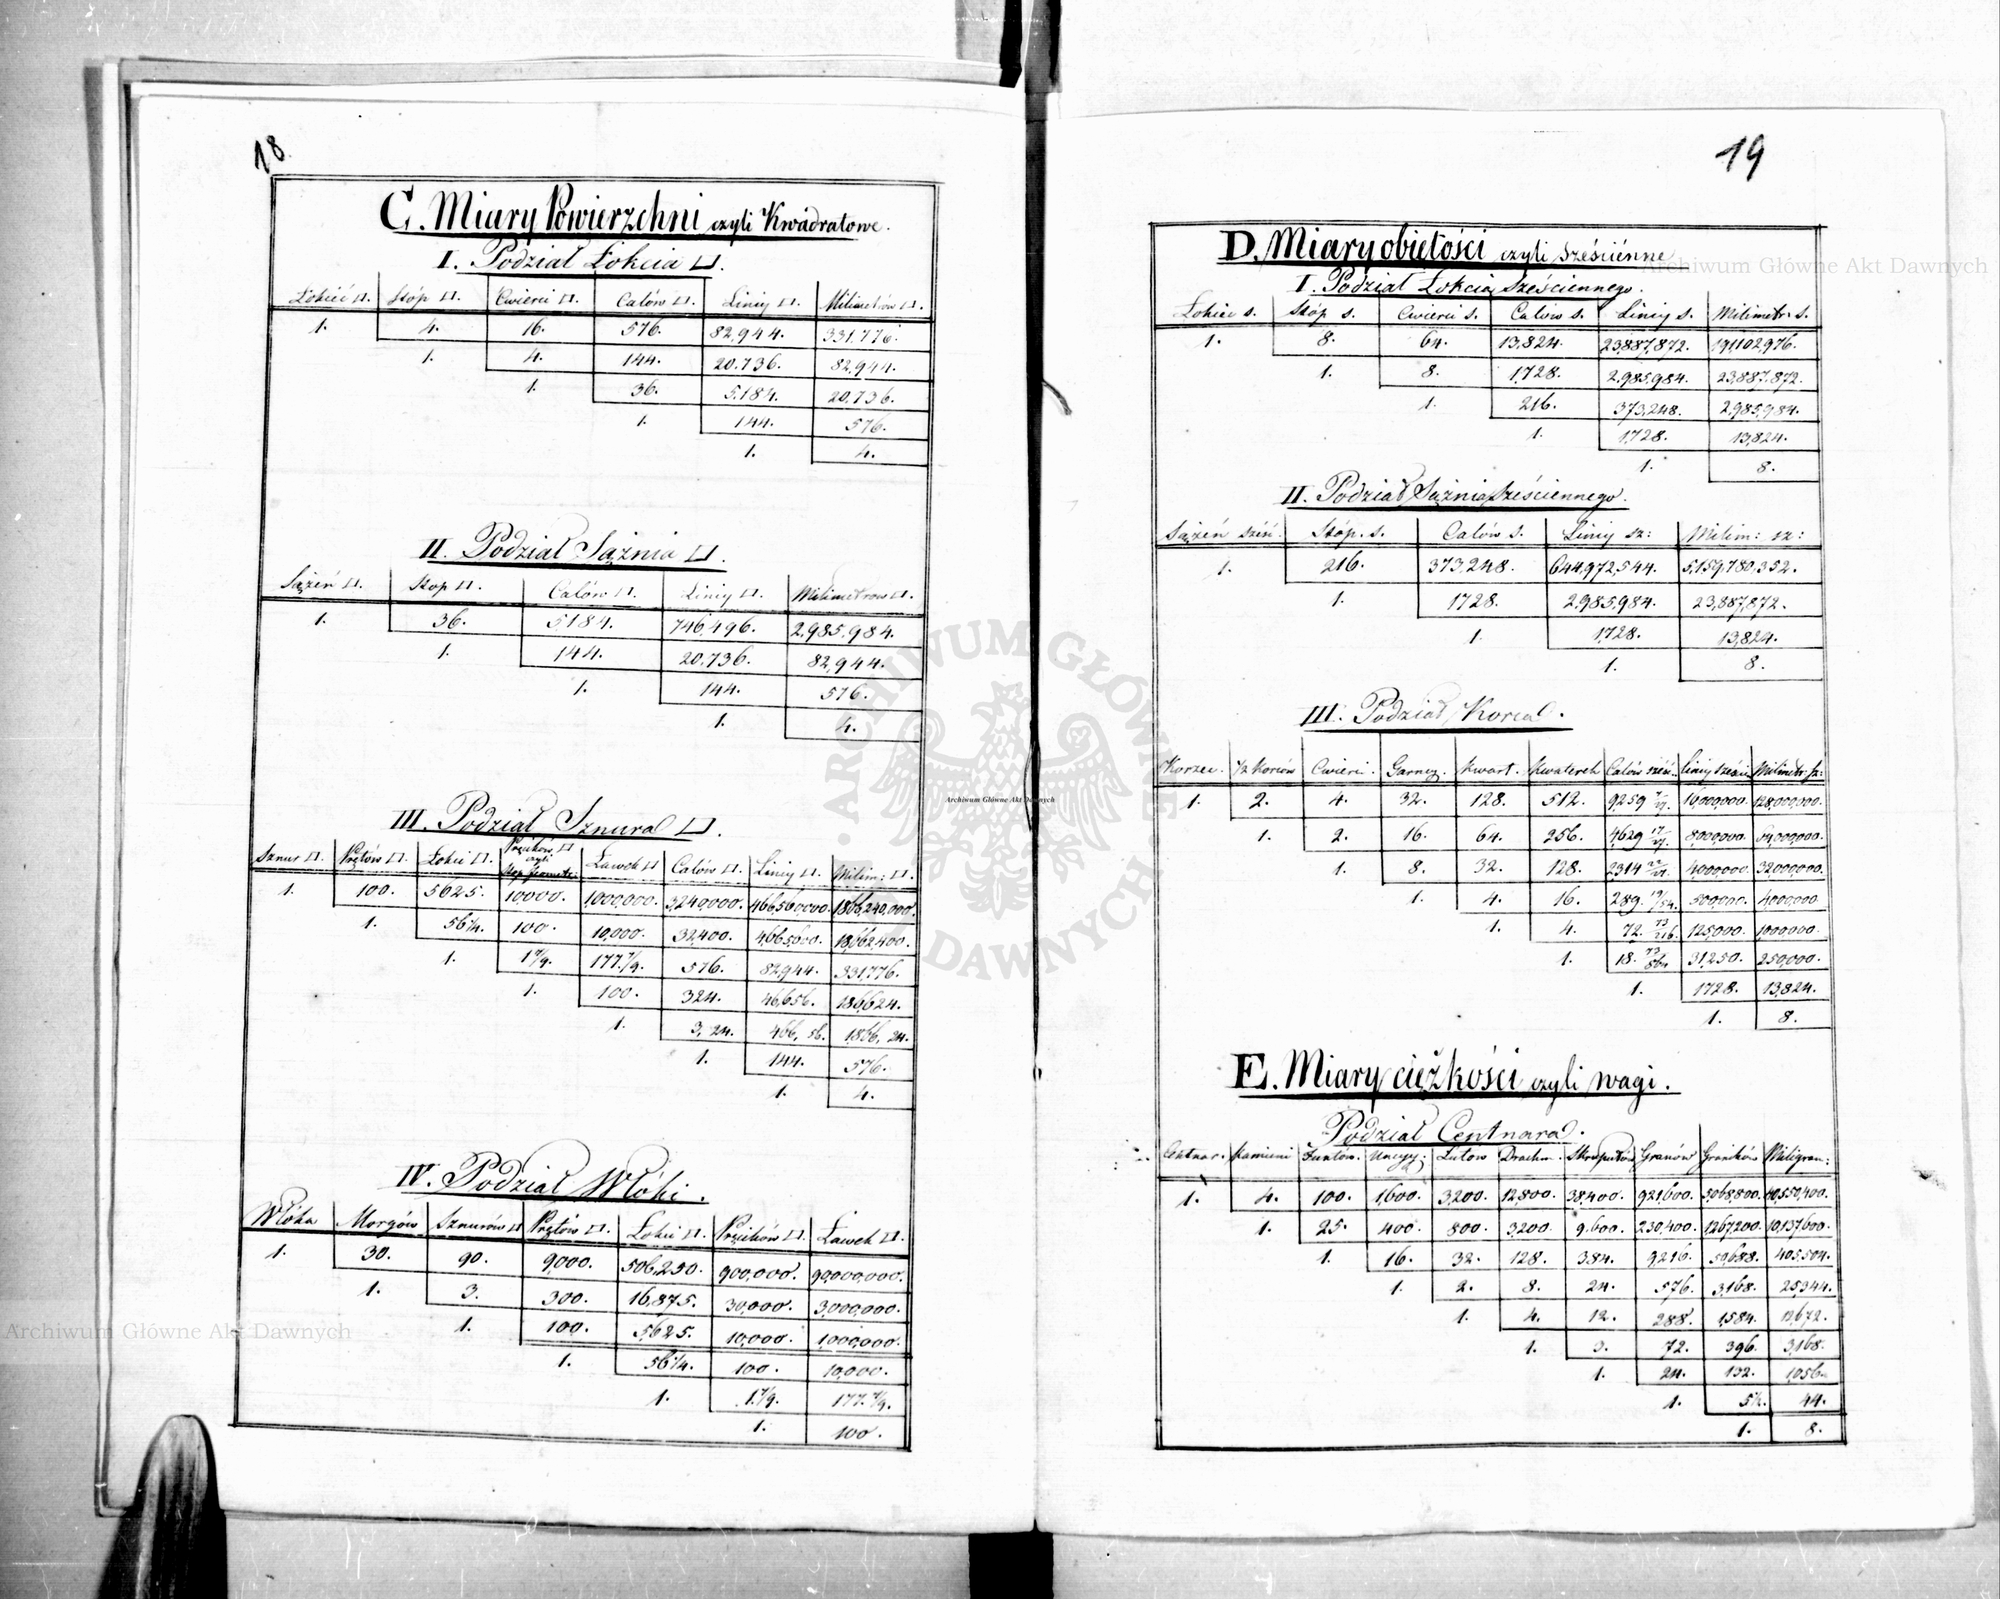 18
C. Miary Powierzchni czyli Kwadratowe.
I. Podział Łokcia □.
Łokieć □. Stóp □. Cwierci □. Calów □. Liniy □. Milimetrów □.
1. 4. 16. 576. 82,944. 331,776.
1. 4. 144. 20,736. 82,944.
1. 36. 5,184. 20,736.
1. 144. 576.
1. 4.
II. Podział Sążnia □.
Sążeń □. Stop □. Calów □. Liniy □. Milimetrow □.
1. 36. 5184. 746,496. 2,985,984.
1. 144. 20,736. 82,944.
1. 144. 576.
1. 4.
III. Podział Sznura □.
Sznur □. Prętów □. Łokci □. Pręcików □ czyli Stop geometr: Ławek □ Calów □. Liniy □. Milim: □.
1. 100. 5625. 10000. 1,000,000. 3,240,000. 466,560,000. 1866,240,000.
1. 56 1/4. 100. 10,000. 32,400. 4,665,600. 18,662,400.
1. 1 7/9. 177 7/9. 576. 82,944. 331,776.
1. 100. 324. 46,656. 186,624.
1. 3, 24. 466, 56. 1,866, 24.
1. 144. 576.
1. 4.
IV. Podział Włóki.
Włóka Morgów Sznurów □ Prętów □. Łokci □. Pręcików □. Ławek □.
1. 30. 90. 9,000. 506,250. 900,000. 90,000,000.
1. 3. 300. 16,875. 30,000. 3,000,000.
1. 100. 5,625. 10,000. 1,000,000.
1. 56 1/4. 100. 10,000.
1. 1 7/9. 177 7/9.
1. 100.
19
D. Miary objętości czyli sześciénne
I. Podział Łokcia Sześciennego.
Łokieć s. Stóp s. Cwierci s. Calów s. Liniy s. Milimetr. s.
1. 8. 64. 13,824. 23,887,872. 191,102,976.
1. 8. 1,728. 2,985,984. 23,887,872.
1. 216. 373,248. 2,985,984.
1. 1,728. 13,824.
1. 8.
II. Podział Sążnia Sześciennego.
Sążeń sześć. Stóp. s. Calów s. Liniy sz: Milim: sz:
1. 216. 373,248. 644,972,544. 5,159,780,352.
1. 1728. 2,985,984. 23,887,872.
1. 1,728. 13,824.
1. 8.
III. Podział Korca.
Korzec. 1/2 Korców Cwierci. Garncy. Kwart. Kwaterek Calów sześ. Liniy sześć. Milimetr: sz:
1. 2. 4. 32. 128. 512. 9,259 7/27. 16,000,000. 128,000,000.
1. 2. 16. 64. 256. 4,629 17/27. 8,000,000. 64,000,000.
1. 8. 32. 128. 2314 22/27. 4,000,000. 32,000,000.
1. 4. 16. 289. 19/54. 500,000. 4,000,000.
1. 4. 72. 73/216. 125,000. 1,000,000.
1. 18. 73/864 31,250. 250,000.
1. 1728. 13,824.
1. 8.
E. Miary ciężkości czyli wagi.
Podział Centnara.
Centnar. Kamieni Funtów. Uncyy. Łutów Drachm. Skrupułów Granów Graników Miligram:
1. 4. 100. 1,600. 3,200. 12,800. 38,400. 921,600. 5,068,800. 40,550,400.
1. 25. 400. 800. 3,200. 9,600. 230,400. 1,267,200. 10,137,600.
1. 16. 32. 128. 384. 9,216. 50,688. 405,504.
1. 2. 8. 24. 576. 3,168. 25,344.
1. 4. 12. 288. 1,584. 12,672.
1. 3. 72. 396. 3,168.
1. 24. 132. 1,056.
1. 5 1/2. 44.
1. 8.
Archiwum Główne Akt Dawnych
Archiwum Główne Akt Dawnych
Archiwum Główne Akt Dawnych
ARCHIWUM GŁÓWNE AKT DAWNYCH